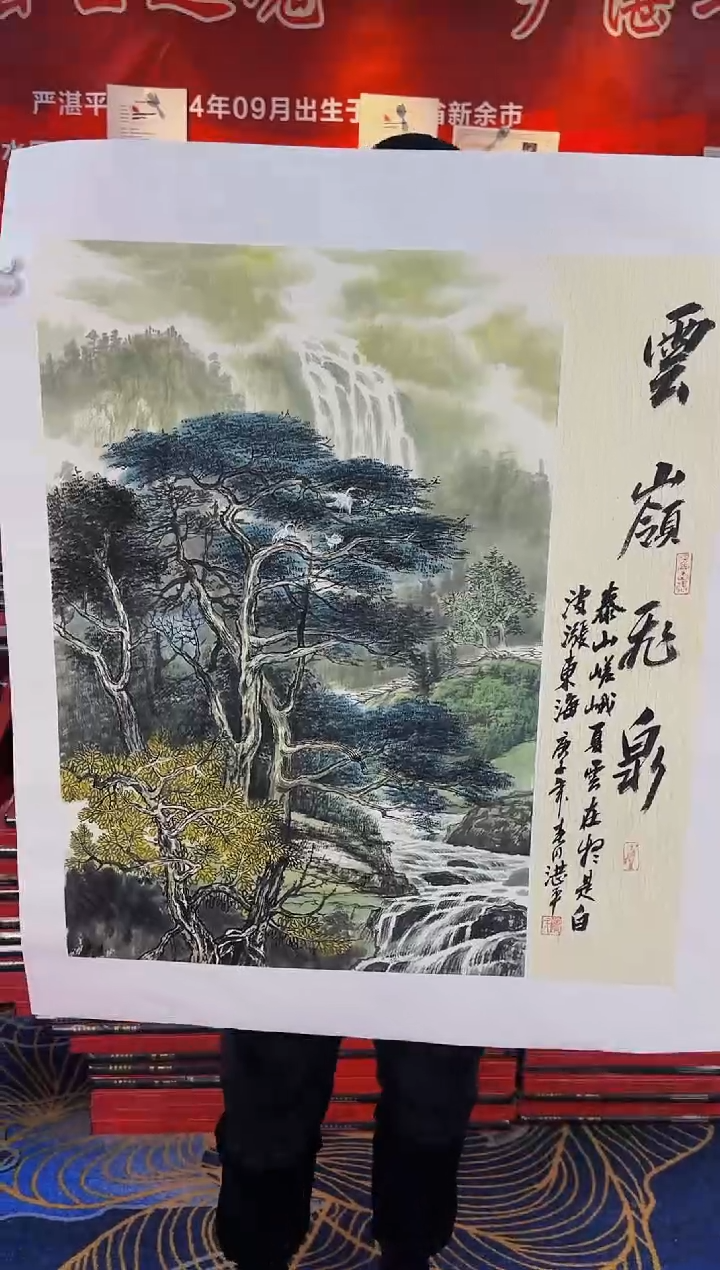 严湛平
4年09月出生于
省新余市
雲嶺飛泉
泰山嵯峨夏雲在疑是白
波漲東海 庚子年 湛平